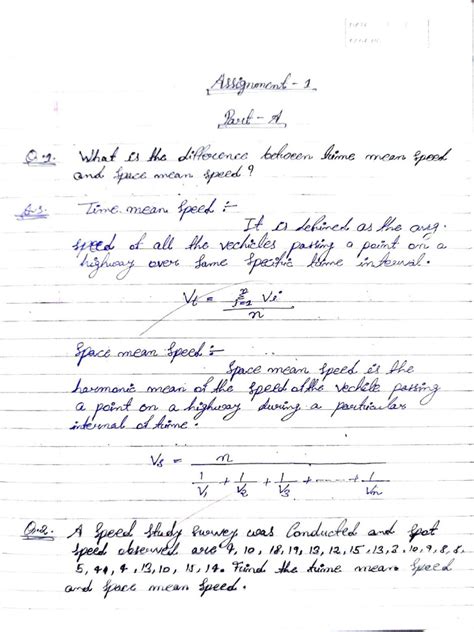 Assignment - 1
Part - A
Q.1. What is the difference between time mean speed
and space mean speed ?
Ans. Time mean speed :-
It is defined as the avg.
speed of all the vechicles passing a point on a
highway over some specific time interval.
Vt = Σ i=1 n Vi / n
Space mean speed :-
Space mean speed is the
harmonic mean of the speed of the vechile passing
a point on a highway during a particular
interval of time.
Vs = n / 1/V1 + 1/V2 + 1/V3 + ...... + 1/Vn
Q.2. A speed study survey was conducted and spot
speed observed are 9, 10, 18, 19, 13, 12, 15, 13, 2, 10, 9, 8, 8,
5, 4, 13, 10, 15, 14. Find the time mean speed
and space mean speed.